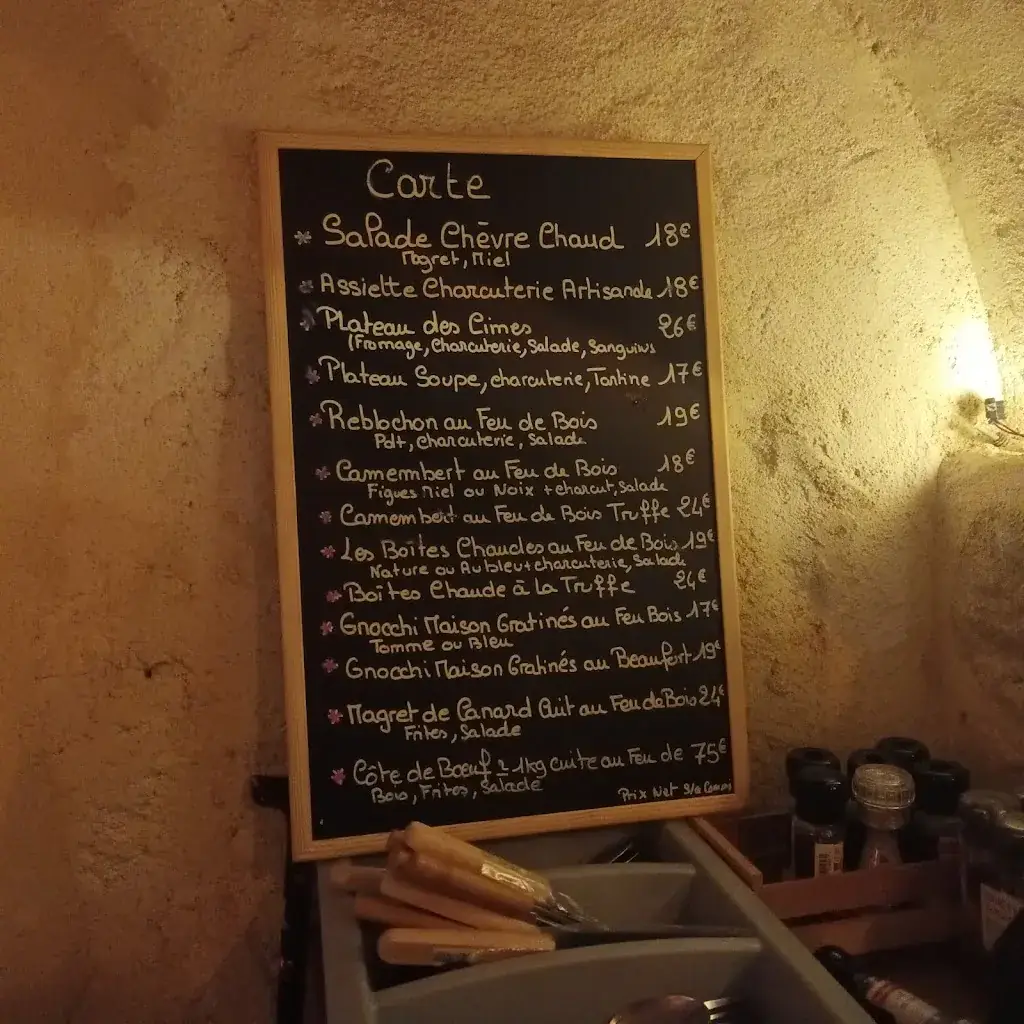 Carte
Salade Chèvre Chaud 18€
Magret, Miel
Assiette Charcuterie Artisanale 18€
Plateau des Cimes 26€
(Fromage, Charcuterie, Salade, Sanguins
Plateau Soupe, charcuterie, Tartine 17€
Reblochon au Feu de Bois 19€
Pdt, charcuterie, Salade
Camembert au Feu de Bois 18€
Figues Miel ou Noix + charcut, Salade
Camembert au Feu de Bois Truffe 24€
Les Boîtes Chaudes au Feu de Bois 19€
Nature ou Au bleu + charcuterie, Salade
Boîtes Chaude à la Truffe 24€
Gnocchi Maison Gratinés au Feu Bois 17€
Tomme ou Bleu
Gnocchi Maison Gratinés au Beaufort 19€
Magret de Canard Cuit au Feu de Bois 24€
Frites, Salade
Côte de Bœuf ≃ 1kg cuite au Feu de 75€
Bois, Frites, Salade
Prix Net